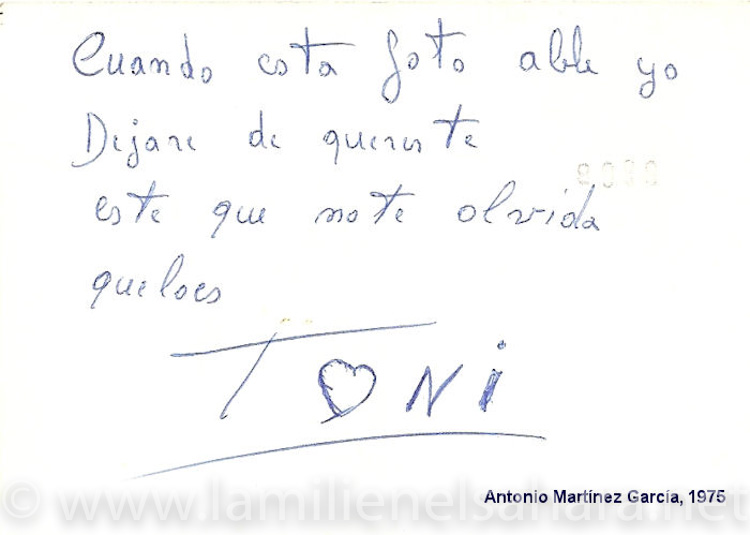 Cuando esta foto able yo
Dejare de quererte
este que no te olvida
queloes
TONi
Antonio Martínez García, 1975
© www.lamilienelsahara.net